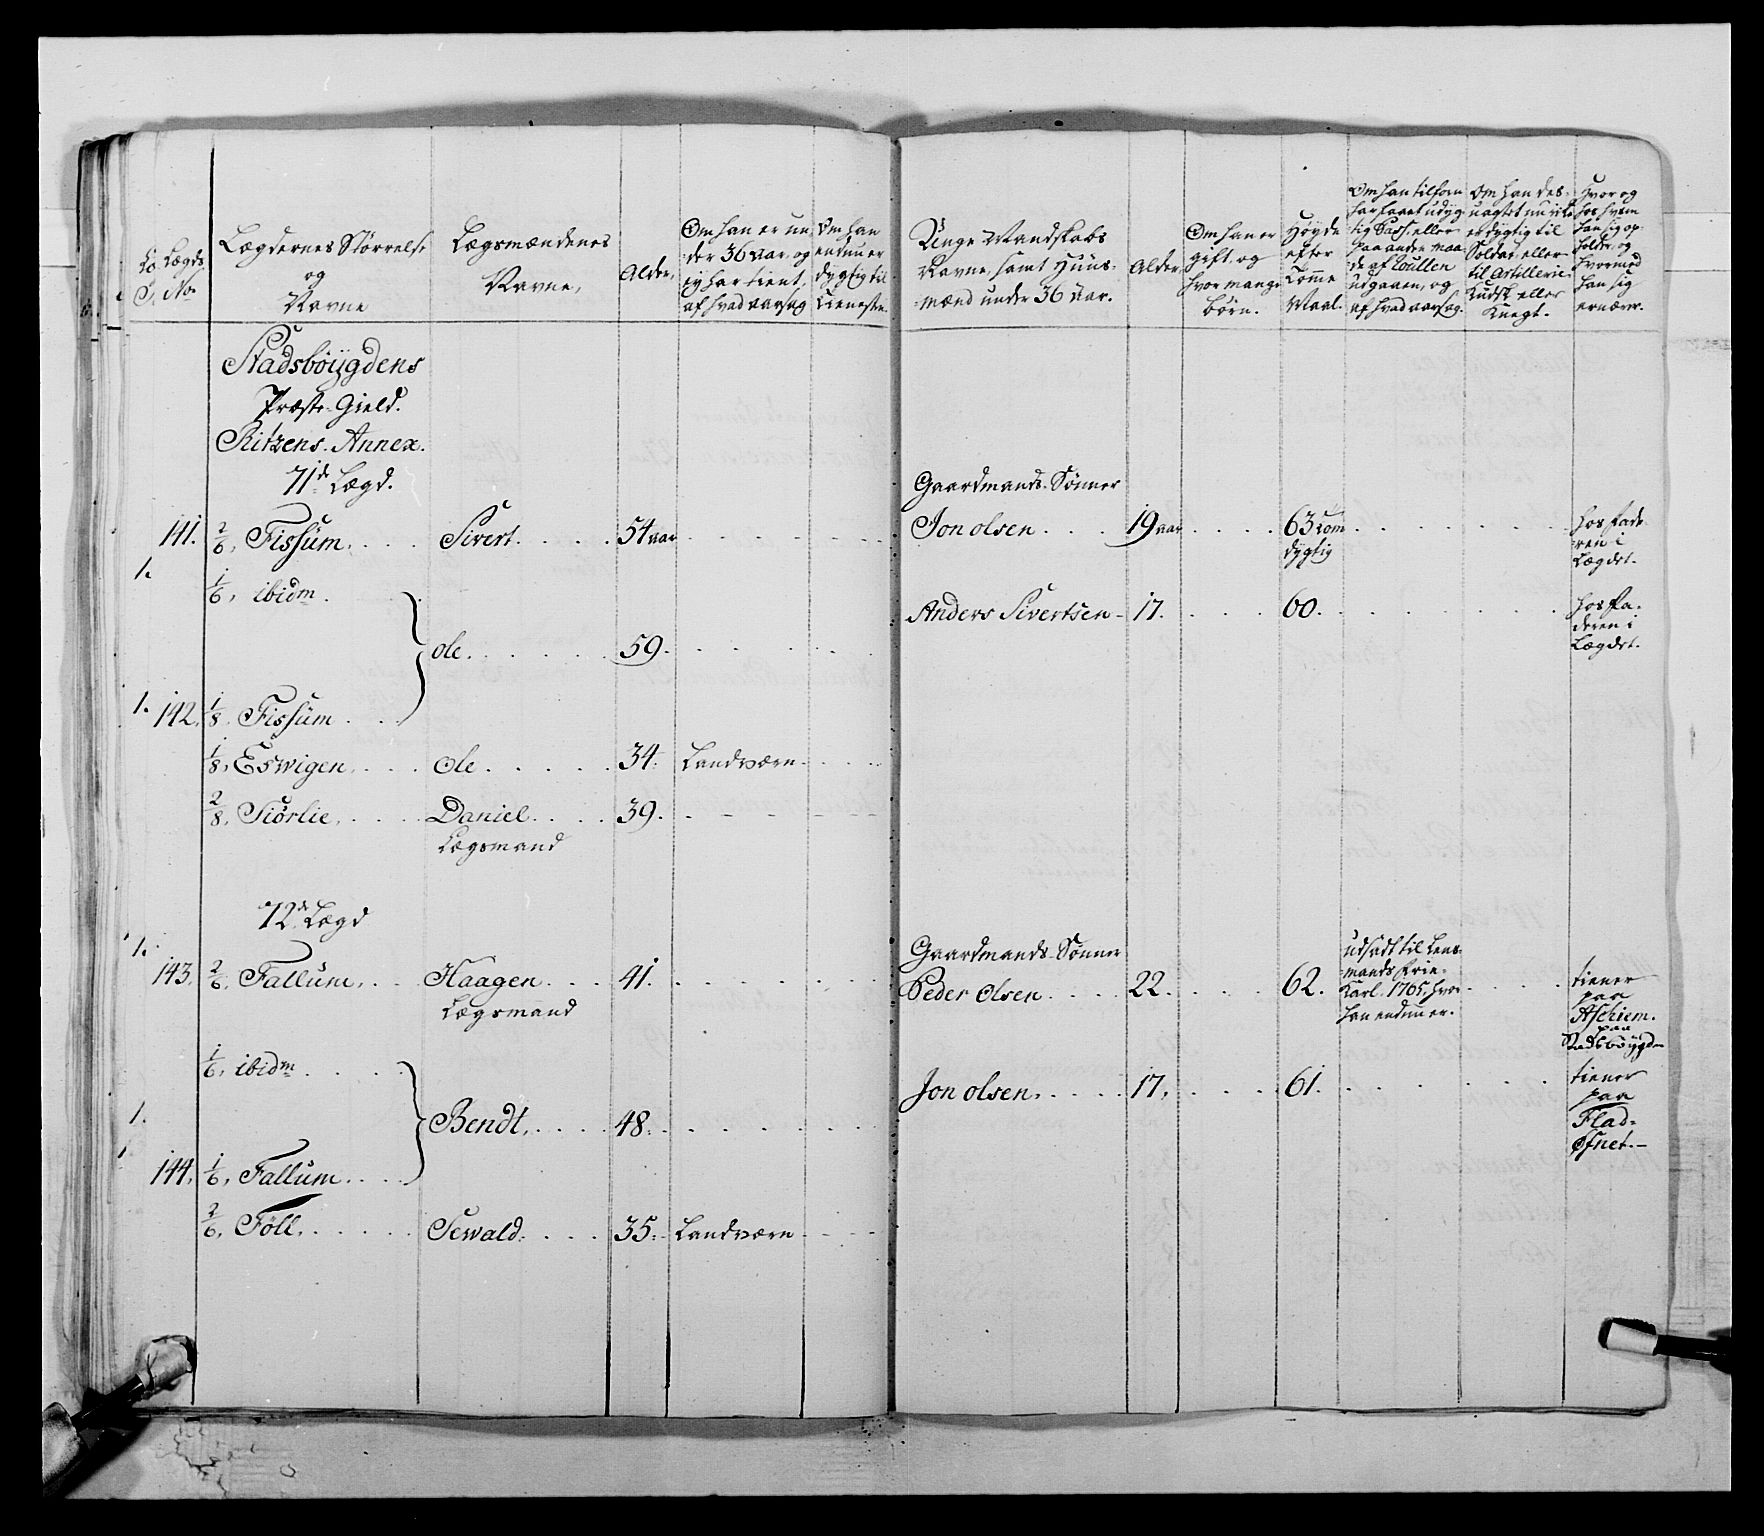 Lægds
No
Lægdernes Størrelse
og
Navne
Lægsmændenes
Navne,
Alder,
Om han er un
der 36 aar, og
ey har tient,
af hvad aarsag
Om han
endnu er
dygtig til
Tieneste.
Unge Mandskabs
Navne, samt Huus-
mænd under 36 aar.
Alder,
Om han er
gift, og
hvor mange
børn.
Høyde
efter
Tomme
Maal.
Om han tilforn
har faaet udyg-
tig Pass, eller
paa anden maa
de af Rullen
udgaaen, og
af hvad aarsag.
Om han des-
uagtet nu ikke
er dygtig til
Soldat, eller
til Artillerie
Kudsk eller
Knegt.
Hvor og
hos hvem
han sig op-
holder, og
hvormed
han sig
ernærer.
Stadsböygdens
Præste-Gield.
Ritzens Annex.
71de Lægd.
Gaardmands-Sønner
141. 2/6, Fissüm. Sivert. 54 aar
Jon olsen 19 aar 63 tom
dygtig
hos fade
ren i
Lægdet.
1.
1/6, ibidm.
Anders Sivertsen 17. 60.
hos fa-
deren i
Lægdet.
ole. 59.
1. 142. 1/8. Fissüm
1/8, Eswigen. Ole. 34. Landværn
2/8. Siörlie. Daniel. 39.
Lægsmand
72de Lægd
1.
Gaardmands-Sønner
143. 2/6, Fallum, Haagen 41.
Lægsmand
Peder Olsen 22. 62.
udsadt til Lens
mands frie-
Karl 1765, hvor
han endnu er.
tiener
paa
Aschiem.
paa
Stadsböygden
1/6, ibidm
Jon olsen. 17. 61.
tiener
paa
Flad-
Øfnet.
1.
Bendt. 48.
144. 1/6, Fallum
2/6, Föll. Sewald. 35. Landværn